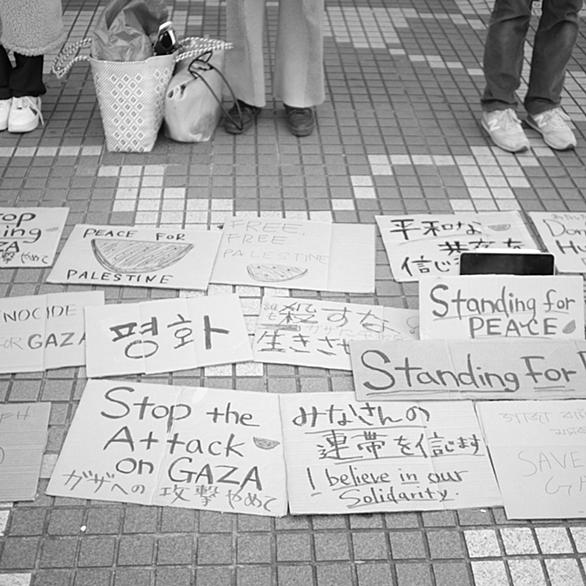 PEACE FOR
PALESTINE
FREE,
FREE
PALESTINE
平和な
共存を
信じ
NOCIDE
GAZA
평화
殺すな
生きさせ
Standing for
PEACE
Standing For
Stop the
Attack
on GAZA
ガザへの攻撃やめて
みなさんの
連帯を信じます
I believe in our
Solidarity.
SAVE